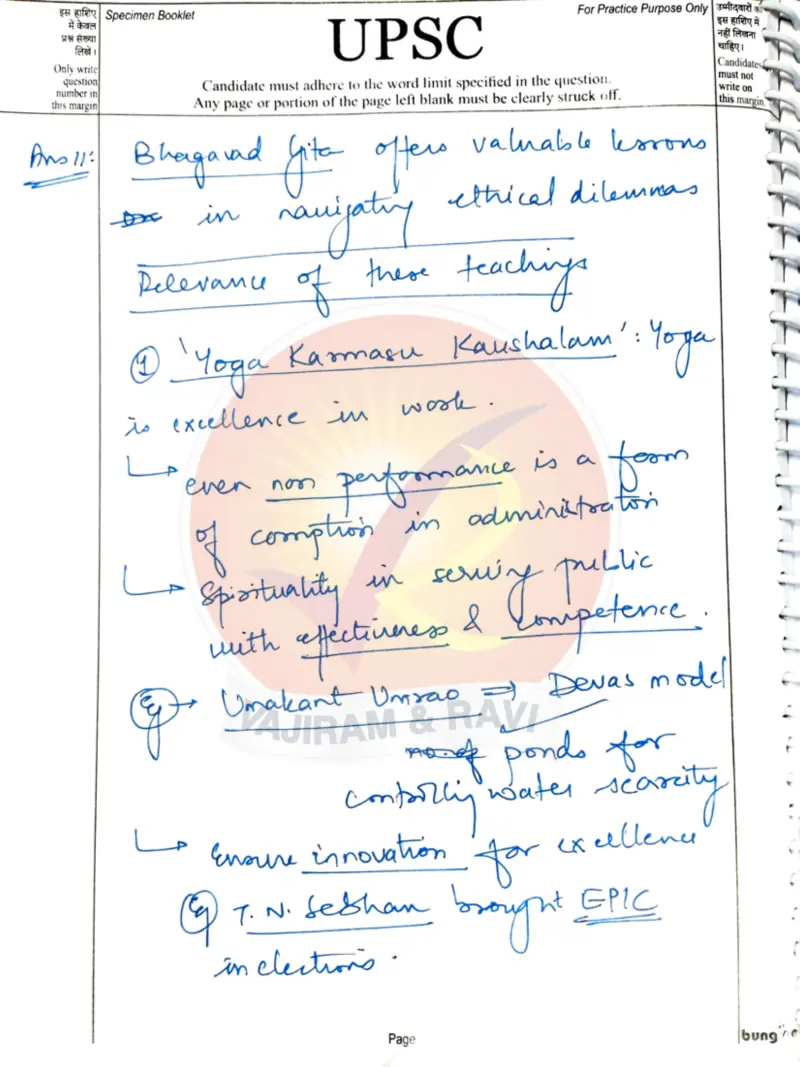 इस हाशिए
में केवल
प्रश्न संख्या
लिखें।
Only write
question
number in
this margin
Specimen Booklet
For Practice Purpose Only
UPSC
Candidate must adhere to the word limit specified in the question.
Any page or portion of the page left blank must be clearly struck off.
उम्मीदवारों को
इस हाशिए में
नहीं लिखना
चाहिए।
Candidates
must not
write on
this margin
Ans 11:
Bhagavad Gita offers valuable lessons
in navigating ethical dilemmas
Relevance of these teachings
① 'Yoga Karmasu Kaushalam': Yoga
is excellence in work.
↳ even non performance is a form
of corruption in administration
↳ Spirituality in serving public
with effectiveness & competence.
Eg → Umakant Umrao ⇒ Devas model
VAJIRAM & RAVI
no. of ponds for
controlling water scarcity
↳ Ensure innovation for excellence
Eg T. N. Seshan brought EPIC
in elections.
Page